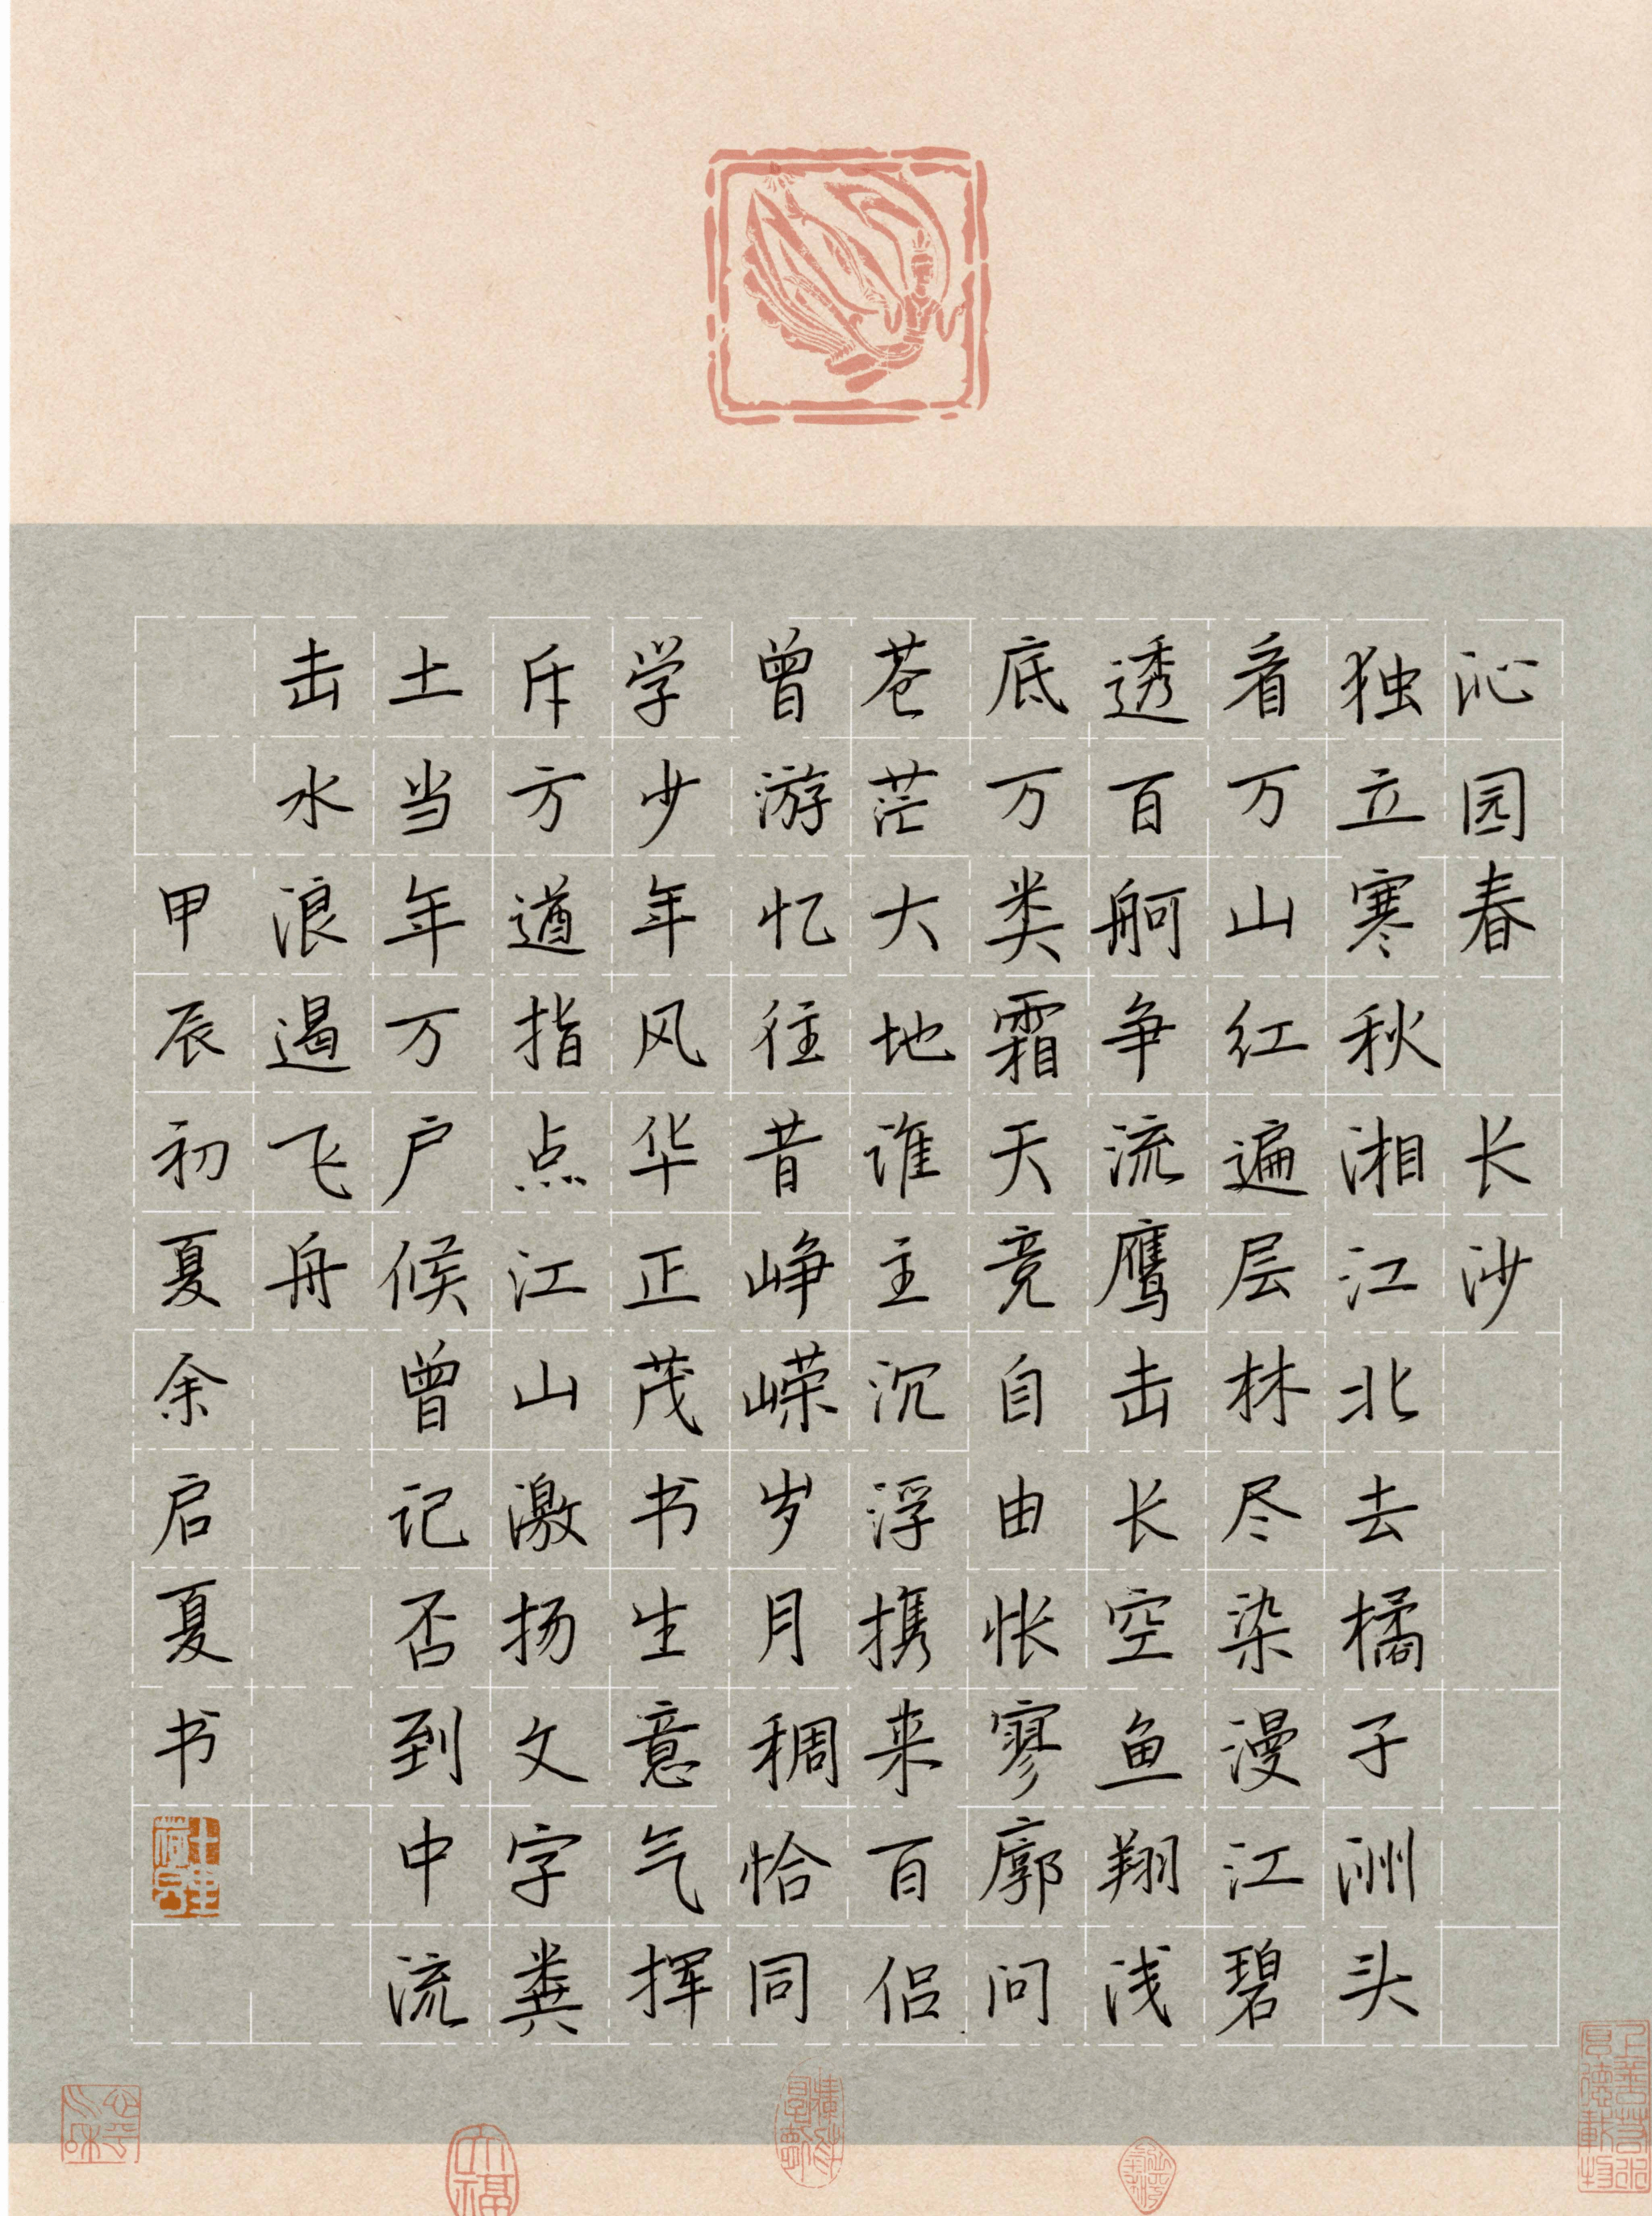 沁园春 长沙
独立寒秋湘江北去橘子洲头
看万山红遍层林尽染漫江碧
透百舸争流鹰击长空鱼翔浅
底万类霜天竞自由怅寥廓问
苍茫大地谁主沉浮携来百侣
曾游忆往昔峥嵘岁月稠恰同
学少年风华正茂书生意气挥
斥方遒指点江山激扬文字粪
土当年万户候曾记否到中流
击水浪遏飞舟
甲辰初夏余启夏书
上善若水厚德载物